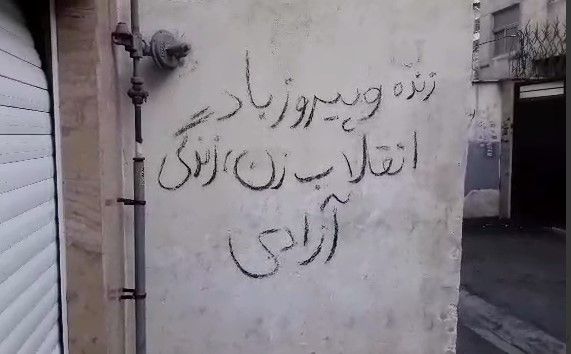 زنده و پیروز باد
انقلاب زن، زندگی
آزادی